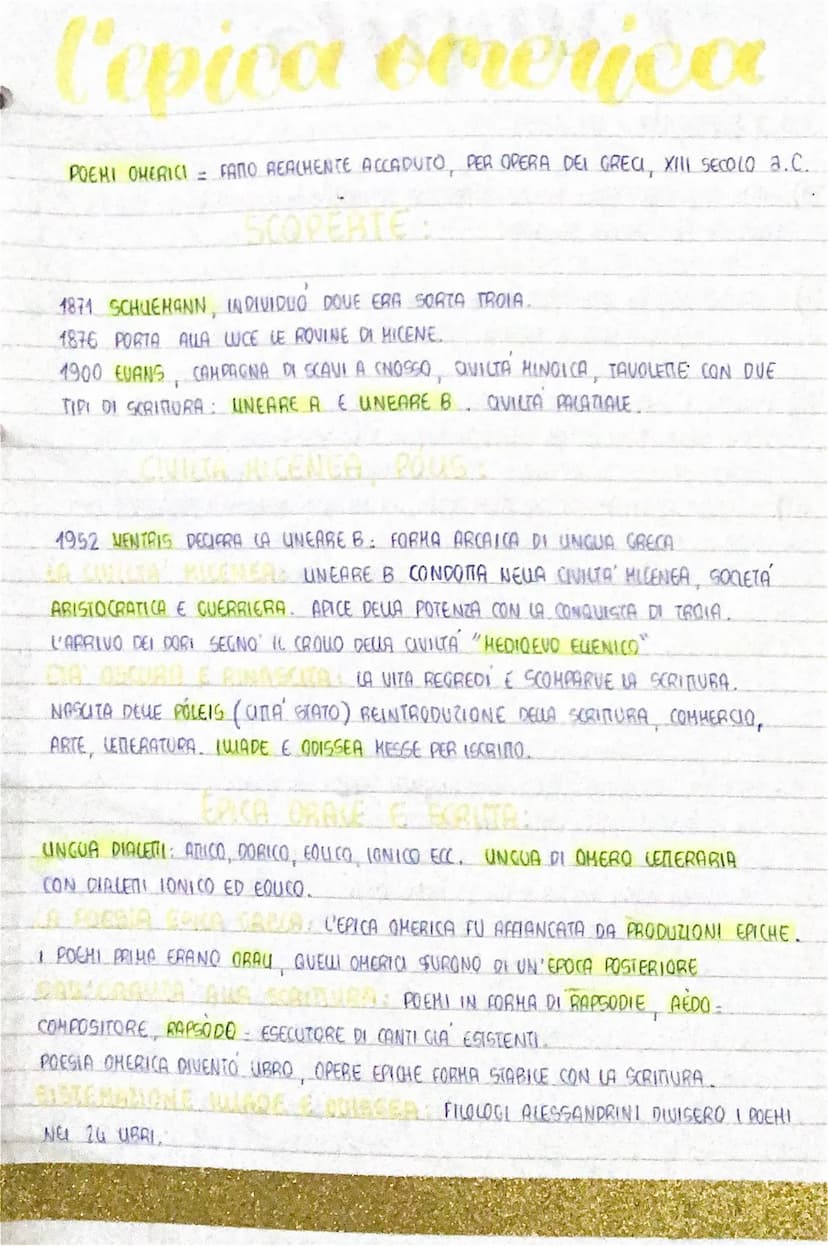 l'epica omerica
POEMI OMERICI = FATTO REALMENTE ACCADUTO, PER OPERA DEI GRECI, XIII SECOLO a.C.
SCOPERTE:
1871 SCHLIEMANN, INDIVIDUÓ DOVE ERA SORTA TROIA.
1876 PORTA ALLA LUCE LE ROVINE DI MICENE.
1900 EVANS, CAMPAGNA DI SCAVI A CNOSSO, CIVILTÁ MINOICA, TAVOLETTE CON DUE
TIPI DI SCRITTURA: LINEARE A E LINEARE B. CIVILTÁ PALATIALE.
CIVILTÀ MICENEA, PÓLIS:
1952 VENTRIS DECIFRA LA LINEARE B: FORMA ARCAICA DI LINGUA GRECA
LA CIVILTA' MICENEA: LINEARE B CONDOTTA NELLA CIVILTA' MICENEA, SOCIETÁ
ARISTOCRATICA E GUERRIERA. APICE DELLA POTENZA CON LA CONQUISTA DI TROIA.
L'ARRIVO DEI DORI SEGNO' IL CROLLO DELLA CIVILTÁ "MEDIOEVO ELLENICO"
ETA' OSCURA E RINASCITA: LA VITA REGREDÍ E SCOMPARVE LA SCRITTURA.
NASCITA DELLE PÓLEIS (CITTA' STATO) REINTRODUZIONE DELLA SCRITTURA, COMMERCIO,
ARTE, LETTERATURA. ILIADE E ODISSEA MESSE PER ISCRITTO.
EPICA ORALE E SCRITTA:
LINGUA DIALETTI: ATTICO, DORICO, EOLICO, IONICO ECC. LINGUA DI OMERO LETTERARIA
CON DIALETTI IONICO ED EOLICO.
LA POESIA EPICA GRECA: L'EPICA OMERICA FU AFFIANCATA DA PRODUZIONI EPICHE.
I POEMI PRIMA ERANO ORALI, QUELLI OMERICI FURONO DI UN'EPOCA POSTERIORE
DALL'ORALITA' ALLA SCRITTURA: POEMI IN FORMA DI RAPSODIE, AÈDO =
COMPOSITORE, RAPSÒDO = ESECUTORE DI CANTI GIA' ESISTENTI.
POESIA OMERICA DIVENTÓ LIBRO, OPERE EPICHE FORMA STABILE CON LA SCRITTURA.
SISTEMAZIONE ILIADE E ODISSEA: FILOLOGI ALESSANDRINI DIVISERO I POEMI
NEI 24 LIBRI.